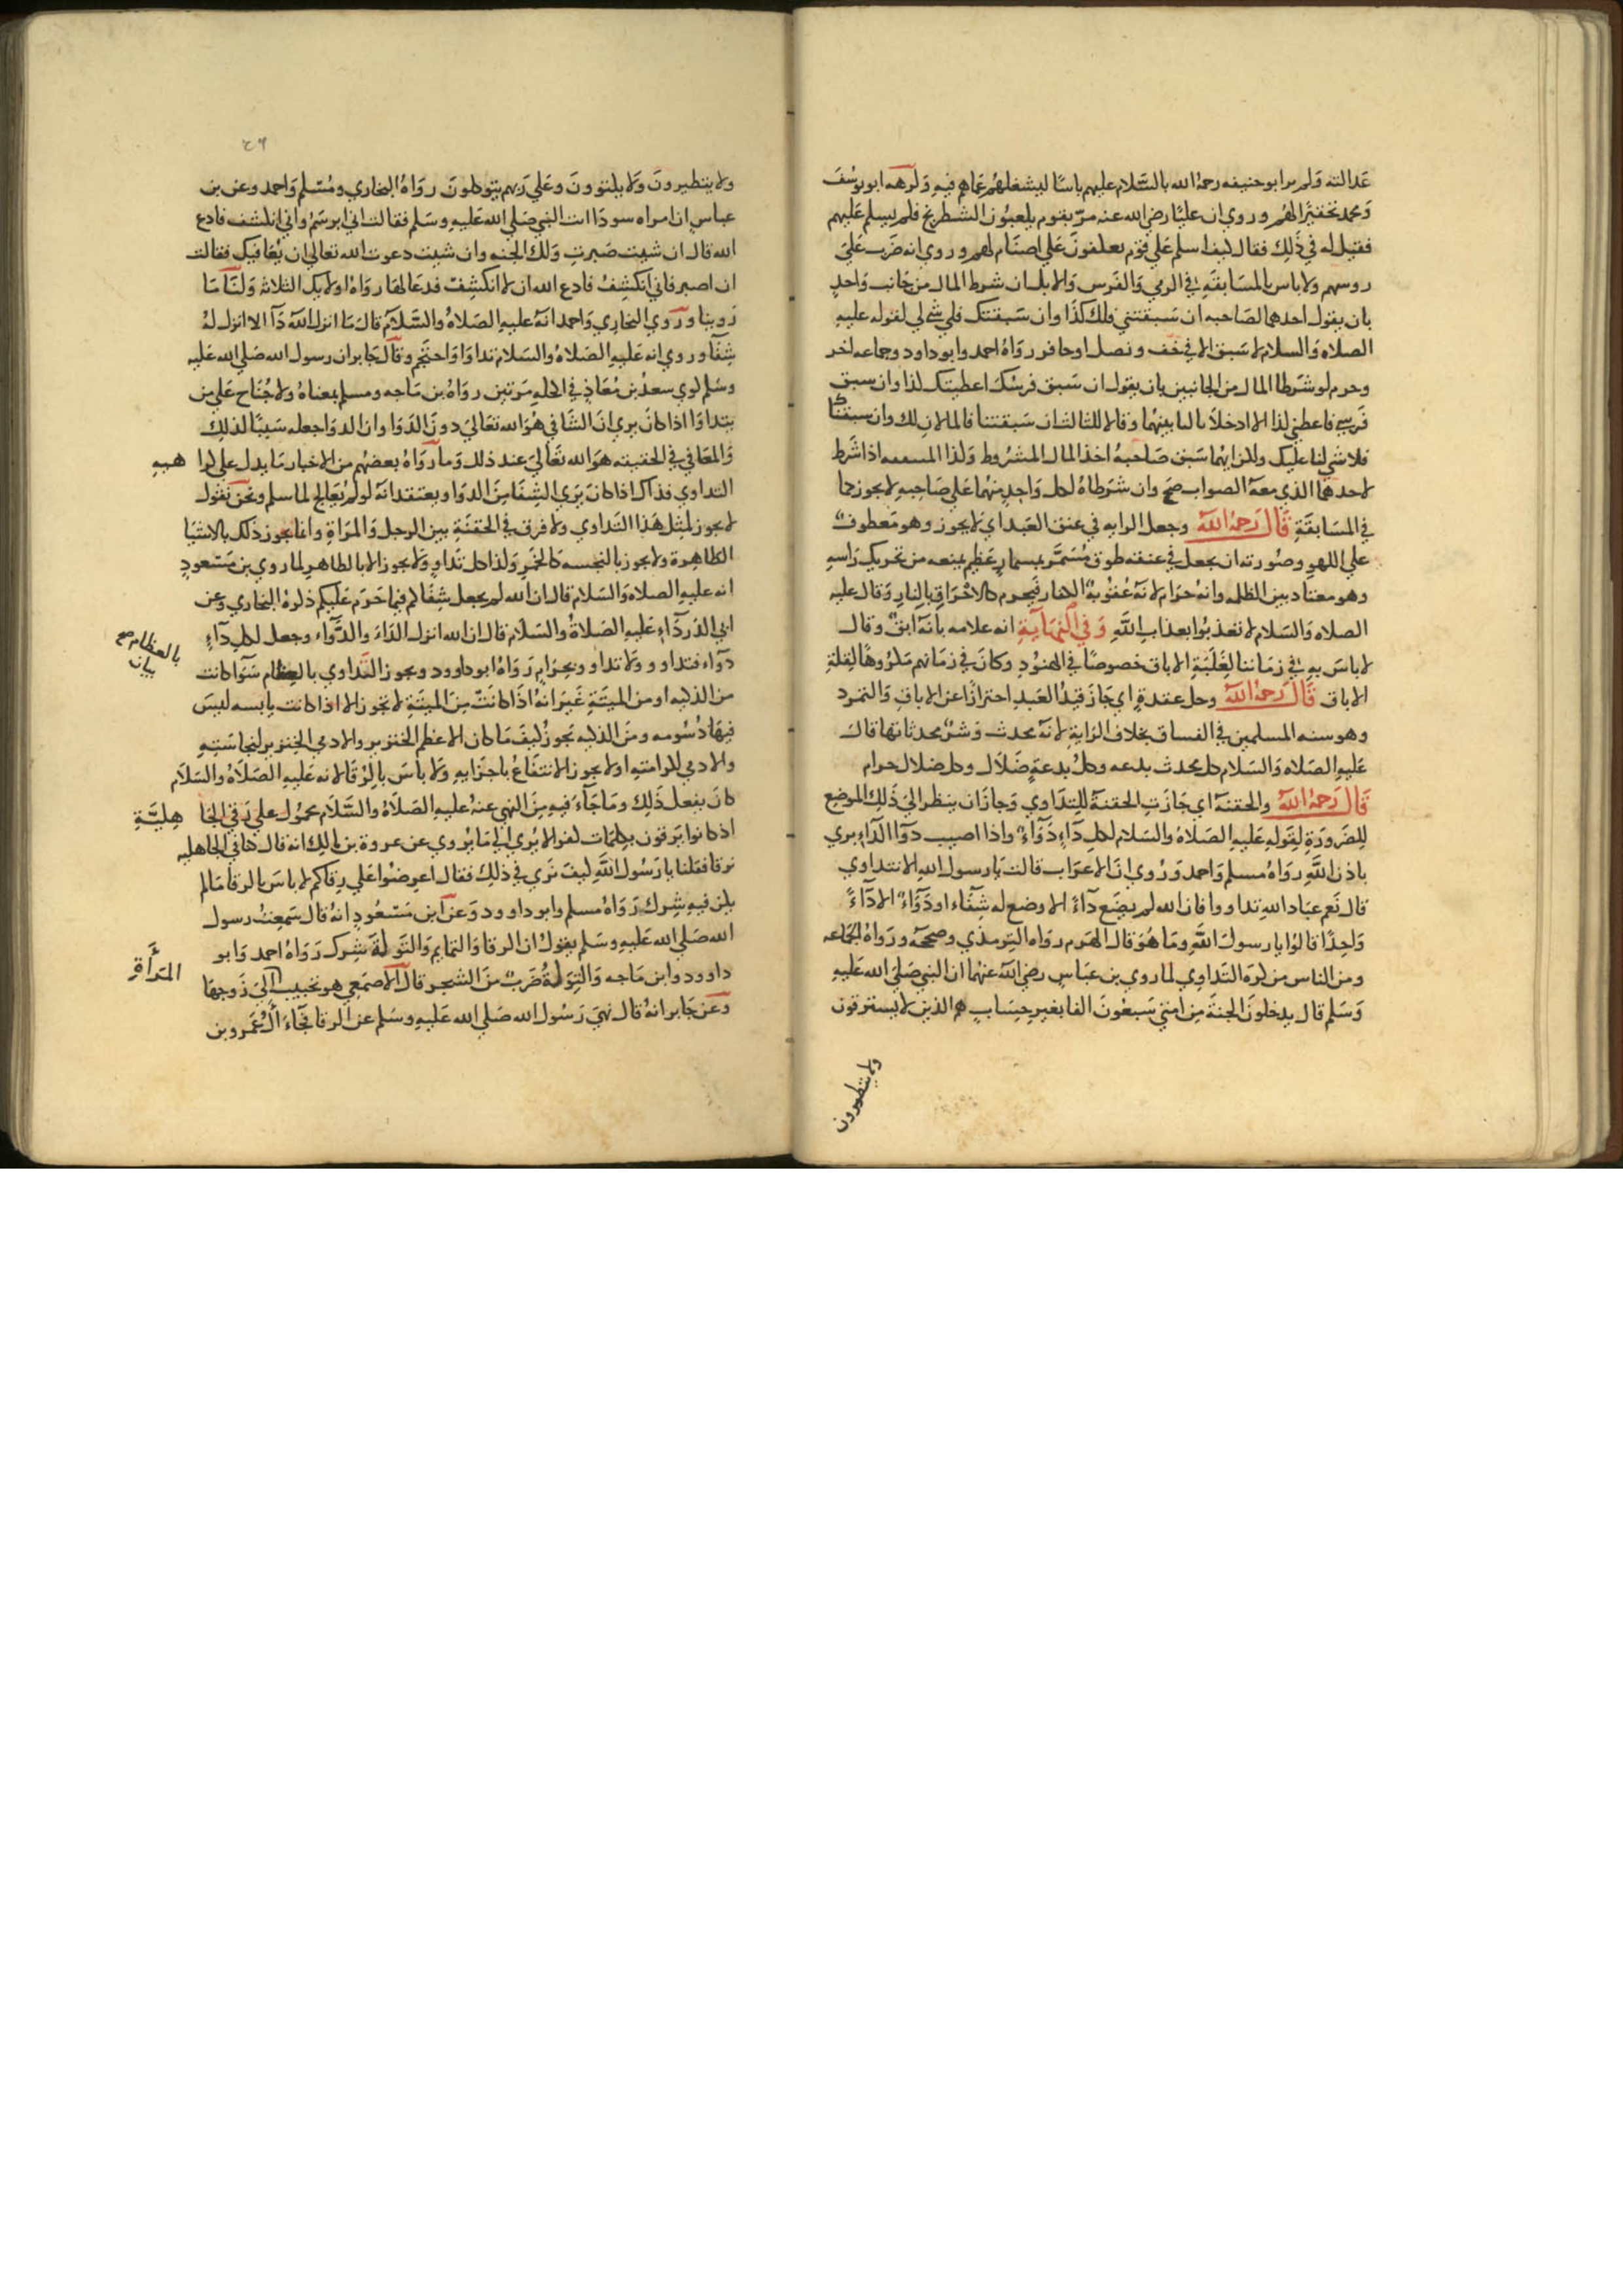 عدالته ولم ير ابو حنيفه رحمه الله بالسلام عليهم باسا ليشغلهم عما هم فيه وكرهه ابو يوسف
ومحمد تحقيرا لهم وروي ان عليا رضي الله عنه مر بقوم يلعبون الشطرنج فلم يسلم عليهم
فقيل له في ذلك فقال كيف اسلم على قوم يعكفون على اصنام لهم وروي انه ضرب على
روسهم ولا باس بالمسابقة في الرمي والفرس والابل ان شرط المال من جانب واحد
بان يقول احدهما لصاحبه ان سبقتني فلك كذا وان سبقتك فلي شي لي لقوله عليه
الصلاه والسلام لا سبق الا في خف ونصل او حافر رواه احمد وابو داود وجماعه اخر
وحرم لو شرطا المال من الجانبين بان يقول ان سبق فرسك اعطيتك كذا وان سبق
فرسي فاعطني كذا الا ادخلا ثالثا بينهما وقالا للثالث ان سبقتنا فالمالان لك وان سبقنا
فلا شي لنا عليك ولكن ايهما سبق صاحبه اخذ المال المشروط وكذا المتفقهه اذا شرط
لاحدهما الذي معه الصواب صح وان شرطاه لكل واحد منهما على صاحبه لا يجوز كما
في المسابقة قال رحمه الله وجعل الرايه في عنق العبد اي لا يجوز وهو معطوف
على اللهو وصورته ان يجعل في عنقه طوق مسمر بمسمار عظيم يمنعه من تحريك راسه
وهو معتاد بين الظلمه وانه حرام لانه عقوبة الكفار فيحرم كالاحراق بالنار وقال عليه
الصلاه والسلام لا تعذبوا بعذاب الله وفي النهاية انه علامه بانه ابق وقال
لا باس به في زماننا لغلبة الاباق خصوصا في الهنود وكان في زمانهم مكروها لقلة
الاباق قال رحمه الله وحل عقدة اي جاز قيد العبد احترازا عن الاباق والتمرد
وهو سنه المسلمين في الفساق بخلاف الراية لانه محدث وشر محدثاتها قال
عليه الصلاه والسلام كل محدث بدعه وكل بدعة ضلال وكل ضلال حرام
قال رحمه الله والحقنه اي جازت الحقنة للتداوي وجاز ان ينظر الى ذلك الموضع
للضرورة لقوله عليه الصلاه والسلام لكل داء دواء واذا اصيب دوا الداء بري
باذن الله رواه مسلم واحمد وروي ان الاعراب قالت يا رسول الله الا نتداوي
قال نعم عباد الله تداووا فان الله لم يضع داء الا وضع له شفاء او دواء الا داء
واحدا قالوا يا رسول الله وما هو قال الهرم رواه الترمذي وصححه ورواه الجماعه
ومن الناس من كره التداوي لما روي بن عباس رضي الله عنهما ان النبي صلى الله عليه
وسلم قال يدخلون الجنة من امتي سبعون الفا بغير حساب هم الذين لا يسترقون
ولا يتطيرون
٤٦
ولا يتطيرون ولا يكتوون وعلى ربهم يتوكلون رواه البخاري ومسلم واحمد وعن بن
عباس ان امراه سودا اتت النبي صلى الله عليه وسلم فقالت اني ابرسم واني انكشف فادع
الله قال ان شيت صبرت ولك الجنه وان شيت دعوت الله تعالى ان يعافيك فقالت
ان اصبر فاني انكشف فادع الله ان لا انكشف فدعا لها رواه اولايك الثلاثه ولنا ما
روينا وروي البخاري واحمد انه عليه الصلاه والسلام قال ما انزل الله دآ الا انزل له
شفآ وروي انه عليه الصلاه والسلام تداوا واحتجم وقال جابر ان رسول الله صلى الله عليه
وسلم كوي سعد بن معاذ في اكحله مرتين رواه بن ماجه ومسلم بمعناه ولا جناح على من
يتداوا اذا كان يري ان الشافي هو الله تعالى دون الدوا وان الدوا جعله سببا لذلك
والمعافي في الحقيقه هو الله تعالى عند ذلك وما رواه بعضهم من الاخبار ما يدل على كرا هيه
التداوي فذاك اذا كان يرى الشفا من الدوا ويعتقد انه لو لم يعالج لما سلم ونحن نقول
لا يجوز لمثل هذا التداوي ولا فرق في الحقنة بين الرجل والمراة وانما يجوز ذلك بالاشيا
الطاهرة ولا يجوز بالنجسه كالخمر وكذا كل تداو ولا يجوز الا بالطاهر لما روي بن مسعود
انه عليه الصلاه والسلام قال ان الله لم يجعل شفاكم فيما حرم عليكم ذكره البخاري وعن
ابي الدرداء عليه الصلاة والسلام قال ان الله انزل الداء والدواء وجعل لكل داء
دواء فتداوو ولا تداوو بحرام رواه ابو داوود ويجوز التداوي بالعظام سوا كانت
بالعظام صح
بيان
من الذكيه او من الميتة غير انه اذا كانت من الميتة لا تجوز الا اذا كانت يابسه ليس
فيها دسومه ومن الذكيه يجوز كيف ما كان الا عظم الخنزير والادمي الخنزير لنجاسته
والادمي لكرامته اولا يجوز الانتفاع باجزايه ولا باس بالرقا لانه عليه الصلاة والسلام
كان يفعل ذلك وما جاء فيه من النهي عنه عليه الصلاة والسلام محمول على رقي الجا هلية
اذ كانوا يرقون بكلمات كفر الا يري الي ما يروي عن عروة بن مالك انه قال كنا في الجاهليه
نرقا فقلنا يا رسول الله كيف تري في ذلك فقال اعرضوا على رقاكم لا باس بالرقا ما لم
يكن فيه شرك رواه مسلم وابو داوود وعن ابن مسعود انه قال سمعت رسول
الله صلى الله عليه وسلم يقول ان الرقا والتمايم والتولة شرك رواه احمد وابو
داوود وابن ماجه والتولة ضرب من السحر قال الاصمعي هو تحبيب المرأة الي زوجها
وعن جابر انه قال نهي رسول الله صلى الله عليه وسلم عن الرقا فجاء ال عمرو بن